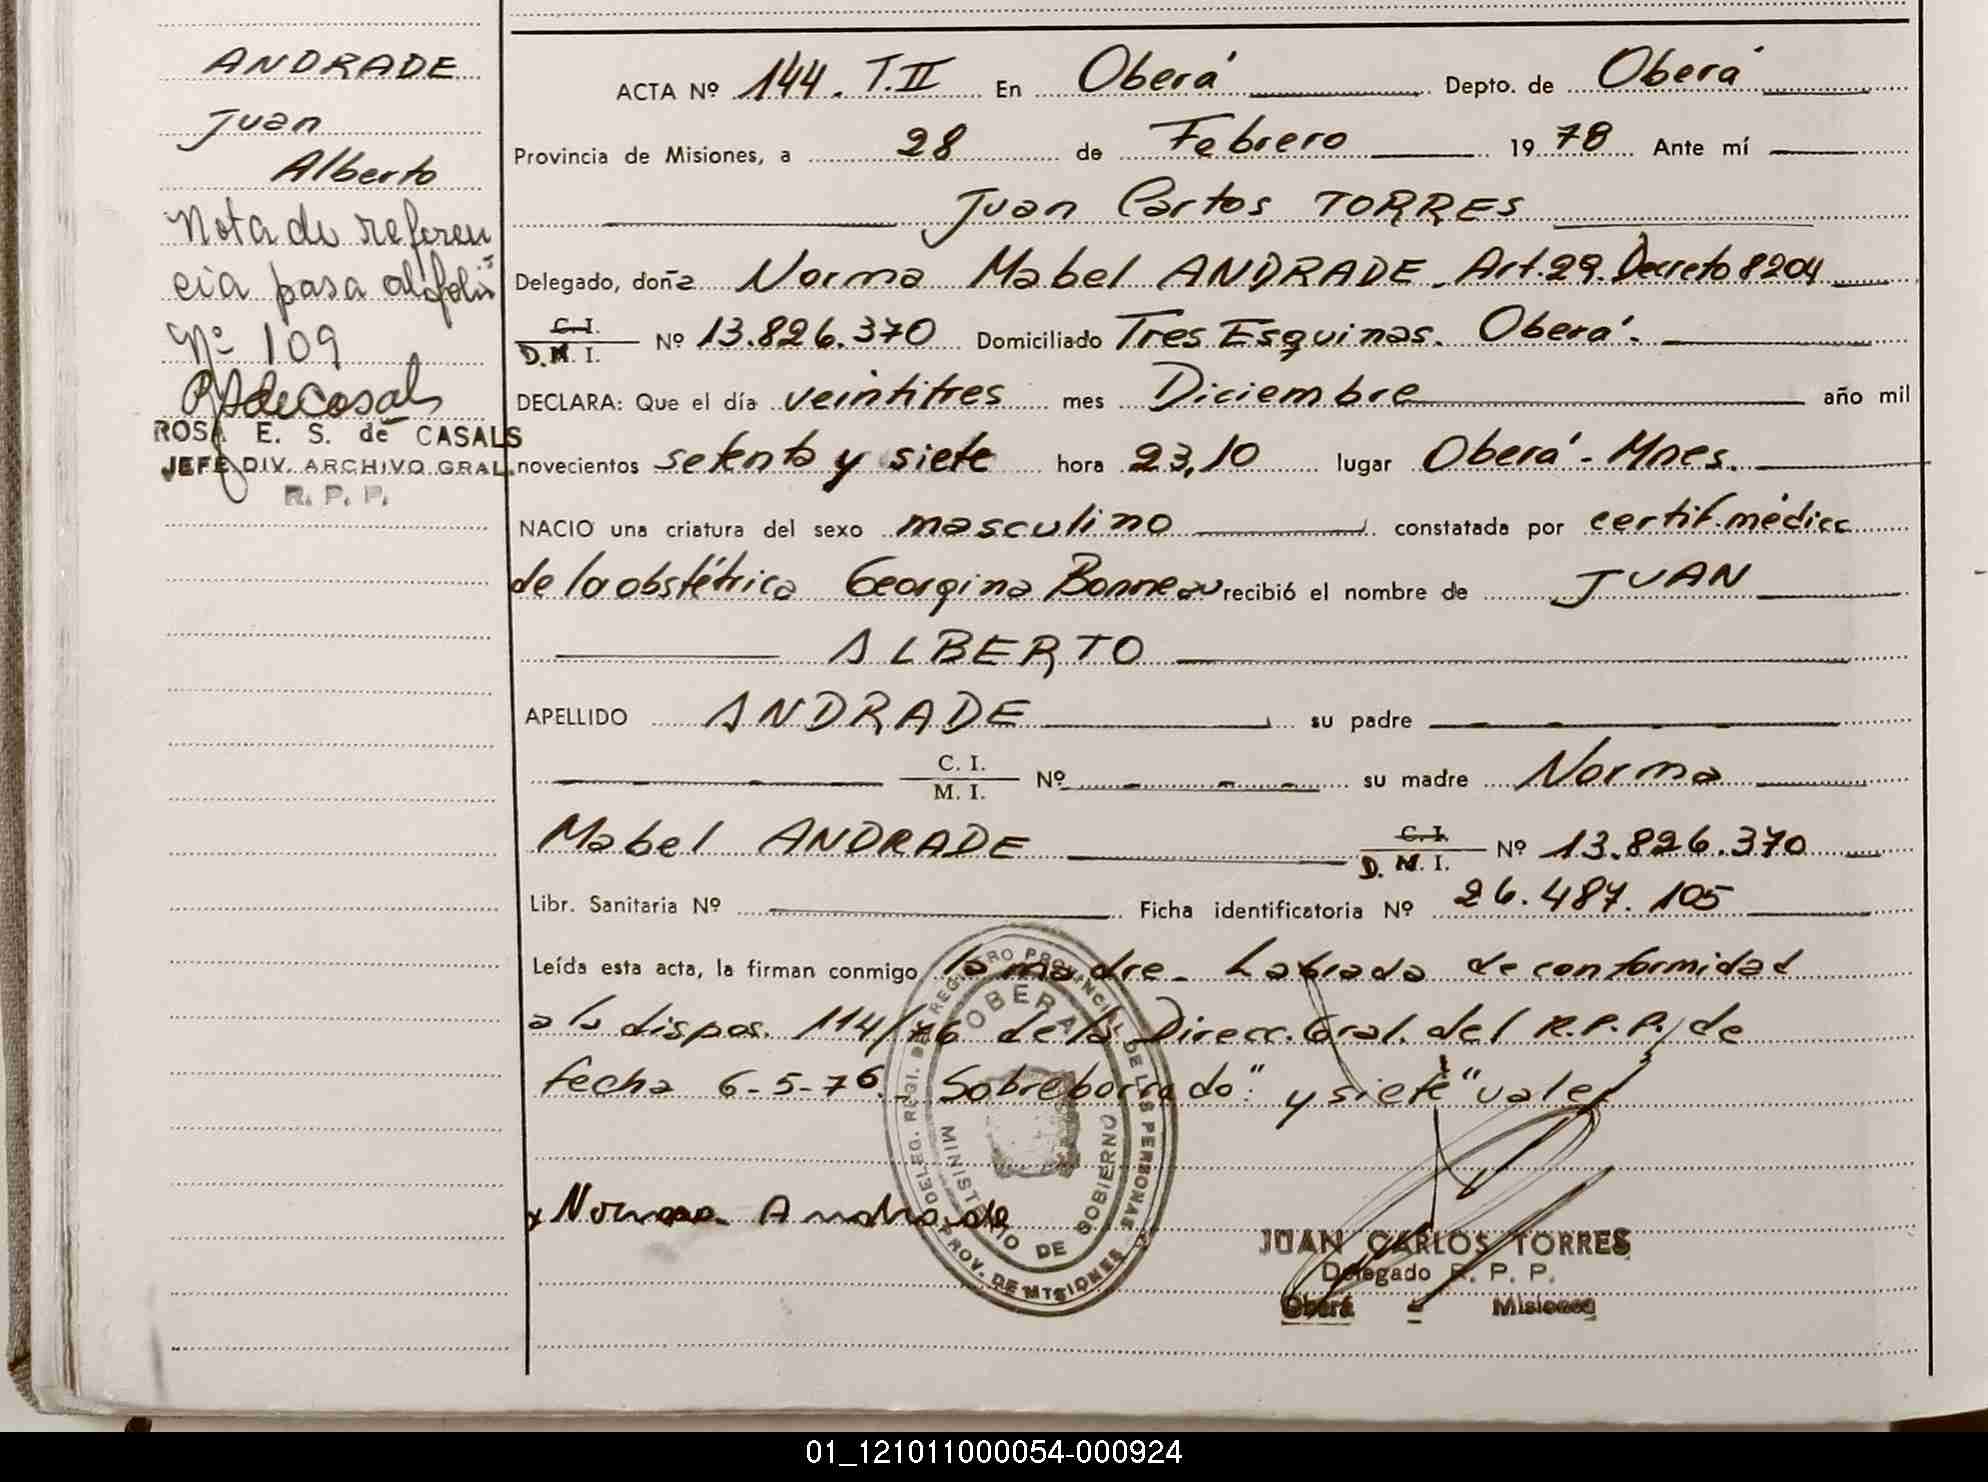 ANDRADE
Juan
Alberto
Nota de referen
cia pasa al folio
Nº 109
ROSA E. S. de CASALS
JEFE DIV. ARCHIVO GRAL.
R. P. P.
ACTA Nº 144. T.II En Oberá Depto. de Oberá
Provincia de Misiones, a 28 de Febrero 1978 Ante mí
Juan Carlos TORRES
Delegado, doña Norma Mabel ANDRADE. Art.29. Decreto 8204
C. I.
D. N. I. Nº 13.826.370 Domiciliado Tres Esquinas. Oberá.
DECLARA: Que el día veintitres mes Diciembre año mil
novecientos setenta y siete hora 23,10 lugar Oberá - Mnes.
NACIO una criatura del sexo masculino constatada por certif. médico
de la obstétrica Georgina Bonneau recibió el nombre de JUAN
ALBERTO
APELLIDO ANDRADE su padre
C. I.
M. I. Nº su madre Norma
Mabel ANDRADE C. I.
D. N. I. Nº 13.826.370
Libr. Sanitaria Nº Ficha identificatoria Nº 26.487.105
Leída esta acta, la firman conmigo la madre. Labrada de conformidad
a la dispos. 114/76 de la Direcc. Gral. del R.P.P. de
fecha 6-5-76. Sobreborrado: "y siete" vale
x Norma Andrade
DELEG. REGI. DEL REGISTRO PROVINCIAL DE LAS PERSONAS
OBERA
MINISTERIO DE GOBIERNO
PROV. DE MISIONES
JUAN CARLOS TORRES
Delegado R. P. P.
Oberá - Misiones
01_121011000054-000924